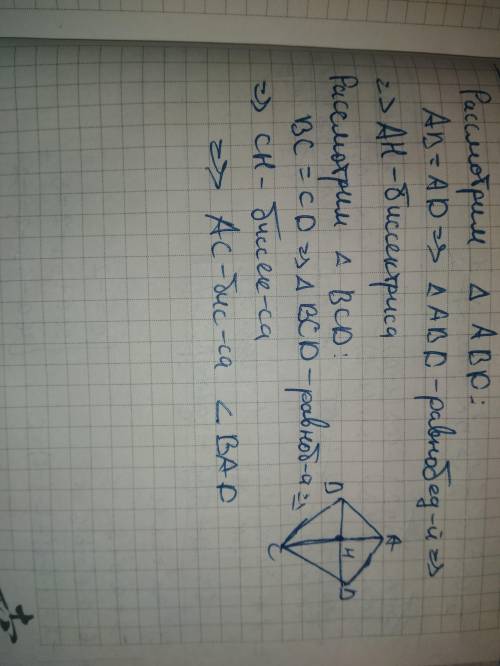 Рассмотрим Δ ABD:
AB = AD => Δ ABD - равнобед-й =>
=> AH - биссектриса
Рассмотрим Δ BCD:
BC = CD => Δ BCD - равноб-й =>
=> CH - биссек-са
=> AC - бис-са < BAD
A
D
H
B
C